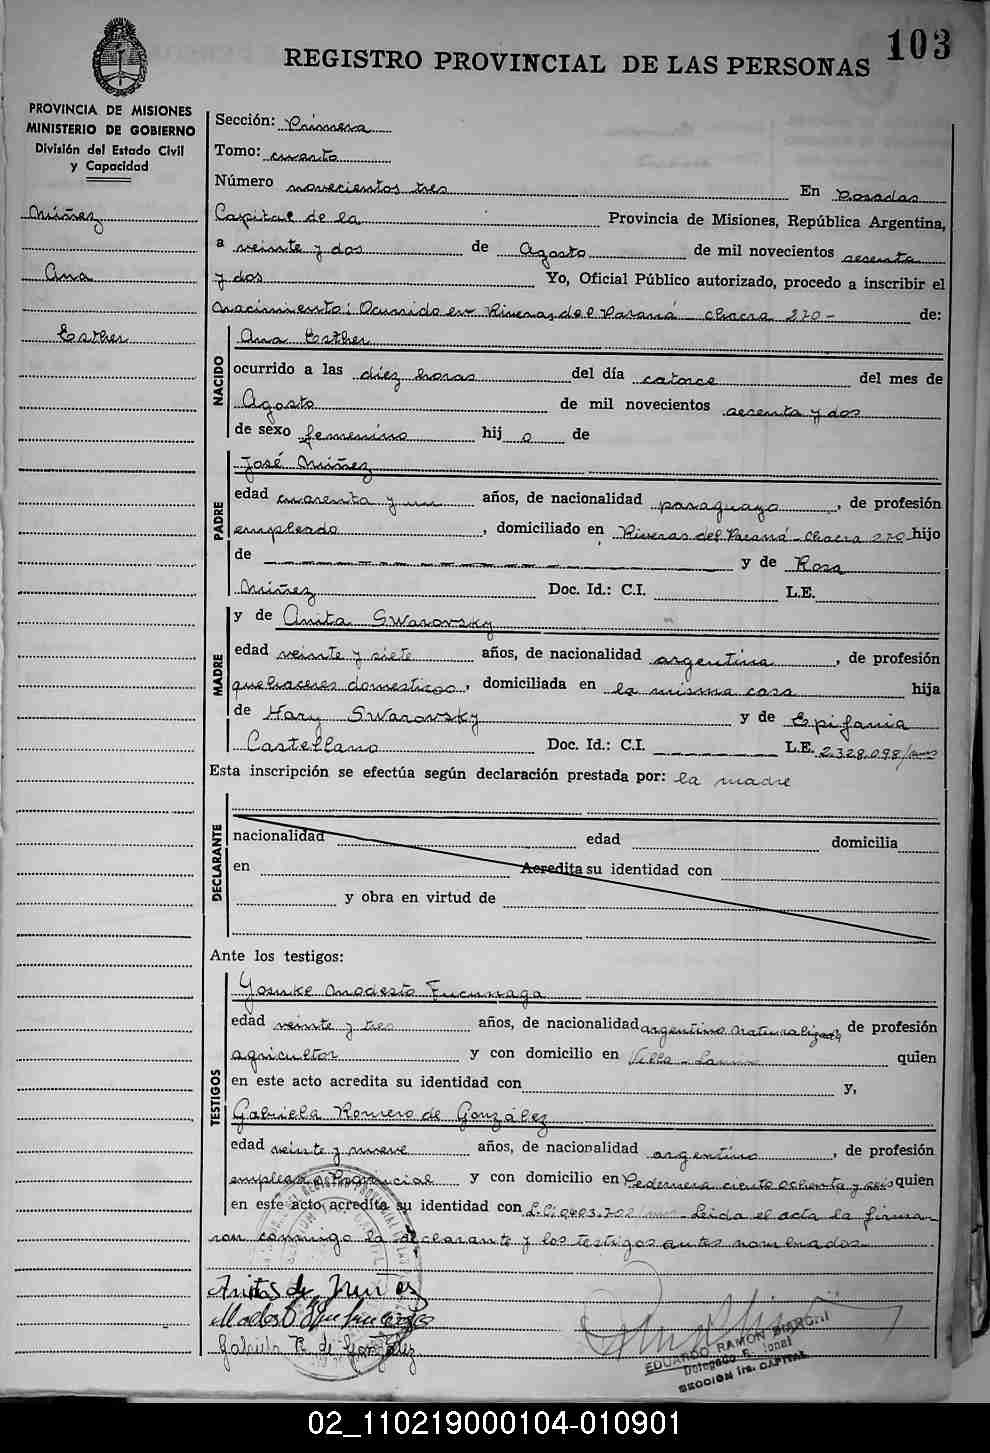 103
REGISTRO PROVINCIAL DE LAS PERSONAS
PROVINCIA DE MISIONES
MINISTERIO DE GOBIERNO
División del Estado Civil
y Capacidad
Núñez
Ana
Esther
Sección: Primera
Tomo: cuarto
Número novecientos tres En Posadas
Capital de la Provincia de Misiones, República Argentina,
a veinte y dos de Agosto de mil novecientos sesenta
y dos Yo, Oficial Público autorizado, procedo a inscribir el
nacimiento: Ocurrido en Riveras del Paraná - chacra 270 - de:
NACIDO
Ana Esther
ocurrido a las diez horas del día catorce del mes de
Agosto de mil novecientos sesenta y dos
de sexo femenino hij a de
PADRE
José Núñez
edad cuarenta y un años, de nacionalidad paraguayo, de profesión
empleado, domiciliado en Riveras del Paraná - Chacra 270 hijo
de y de Rosa
Núñez Doc. Id.: C.I. L.E.
MADRE
y de Anita Swarovsky
edad veinte y siete años, de nacionalidad argentina, de profesión
quehaceres domesticos, domiciliada en la misma casa hija
de Hary Swarovsky y de Epifania
Castellano Doc. Id.: C.I. L.E. 2.328.098/
Esta inscripción se efectúa según declaración prestada por: la madre
DECLARANTE
nacionalidad edad domicilia
en Acredita su identidad con
y obra en virtud de
Ante los testigos:
TESTIGOS
Yosuke Modesto Fucunaga
edad veinte y tres años, de nacionalidad argentino naturalizado, de profesión
agricultor y con domicilio en Villa - quien
en este acto acredita su identidad con y,
Gabriela Romero de González
edad veinte y nueve años, de nacionalidad argentino, de profesión
empleada Provincial y con domicilio en Pedernera ciento ochenta y seis quien
en este acto acredita su identidad con L.C: 0403.702/ - Leida el acta la firma-
ron conmigo la declarante y los testigos antes nombrados.
Anita S de Nuñez
Modesto
Gabriela R. de González
EDUARDO RAMON BIANCHI
Delegado
SECCION 1ra. CAPITAL
02_110219000104-010901